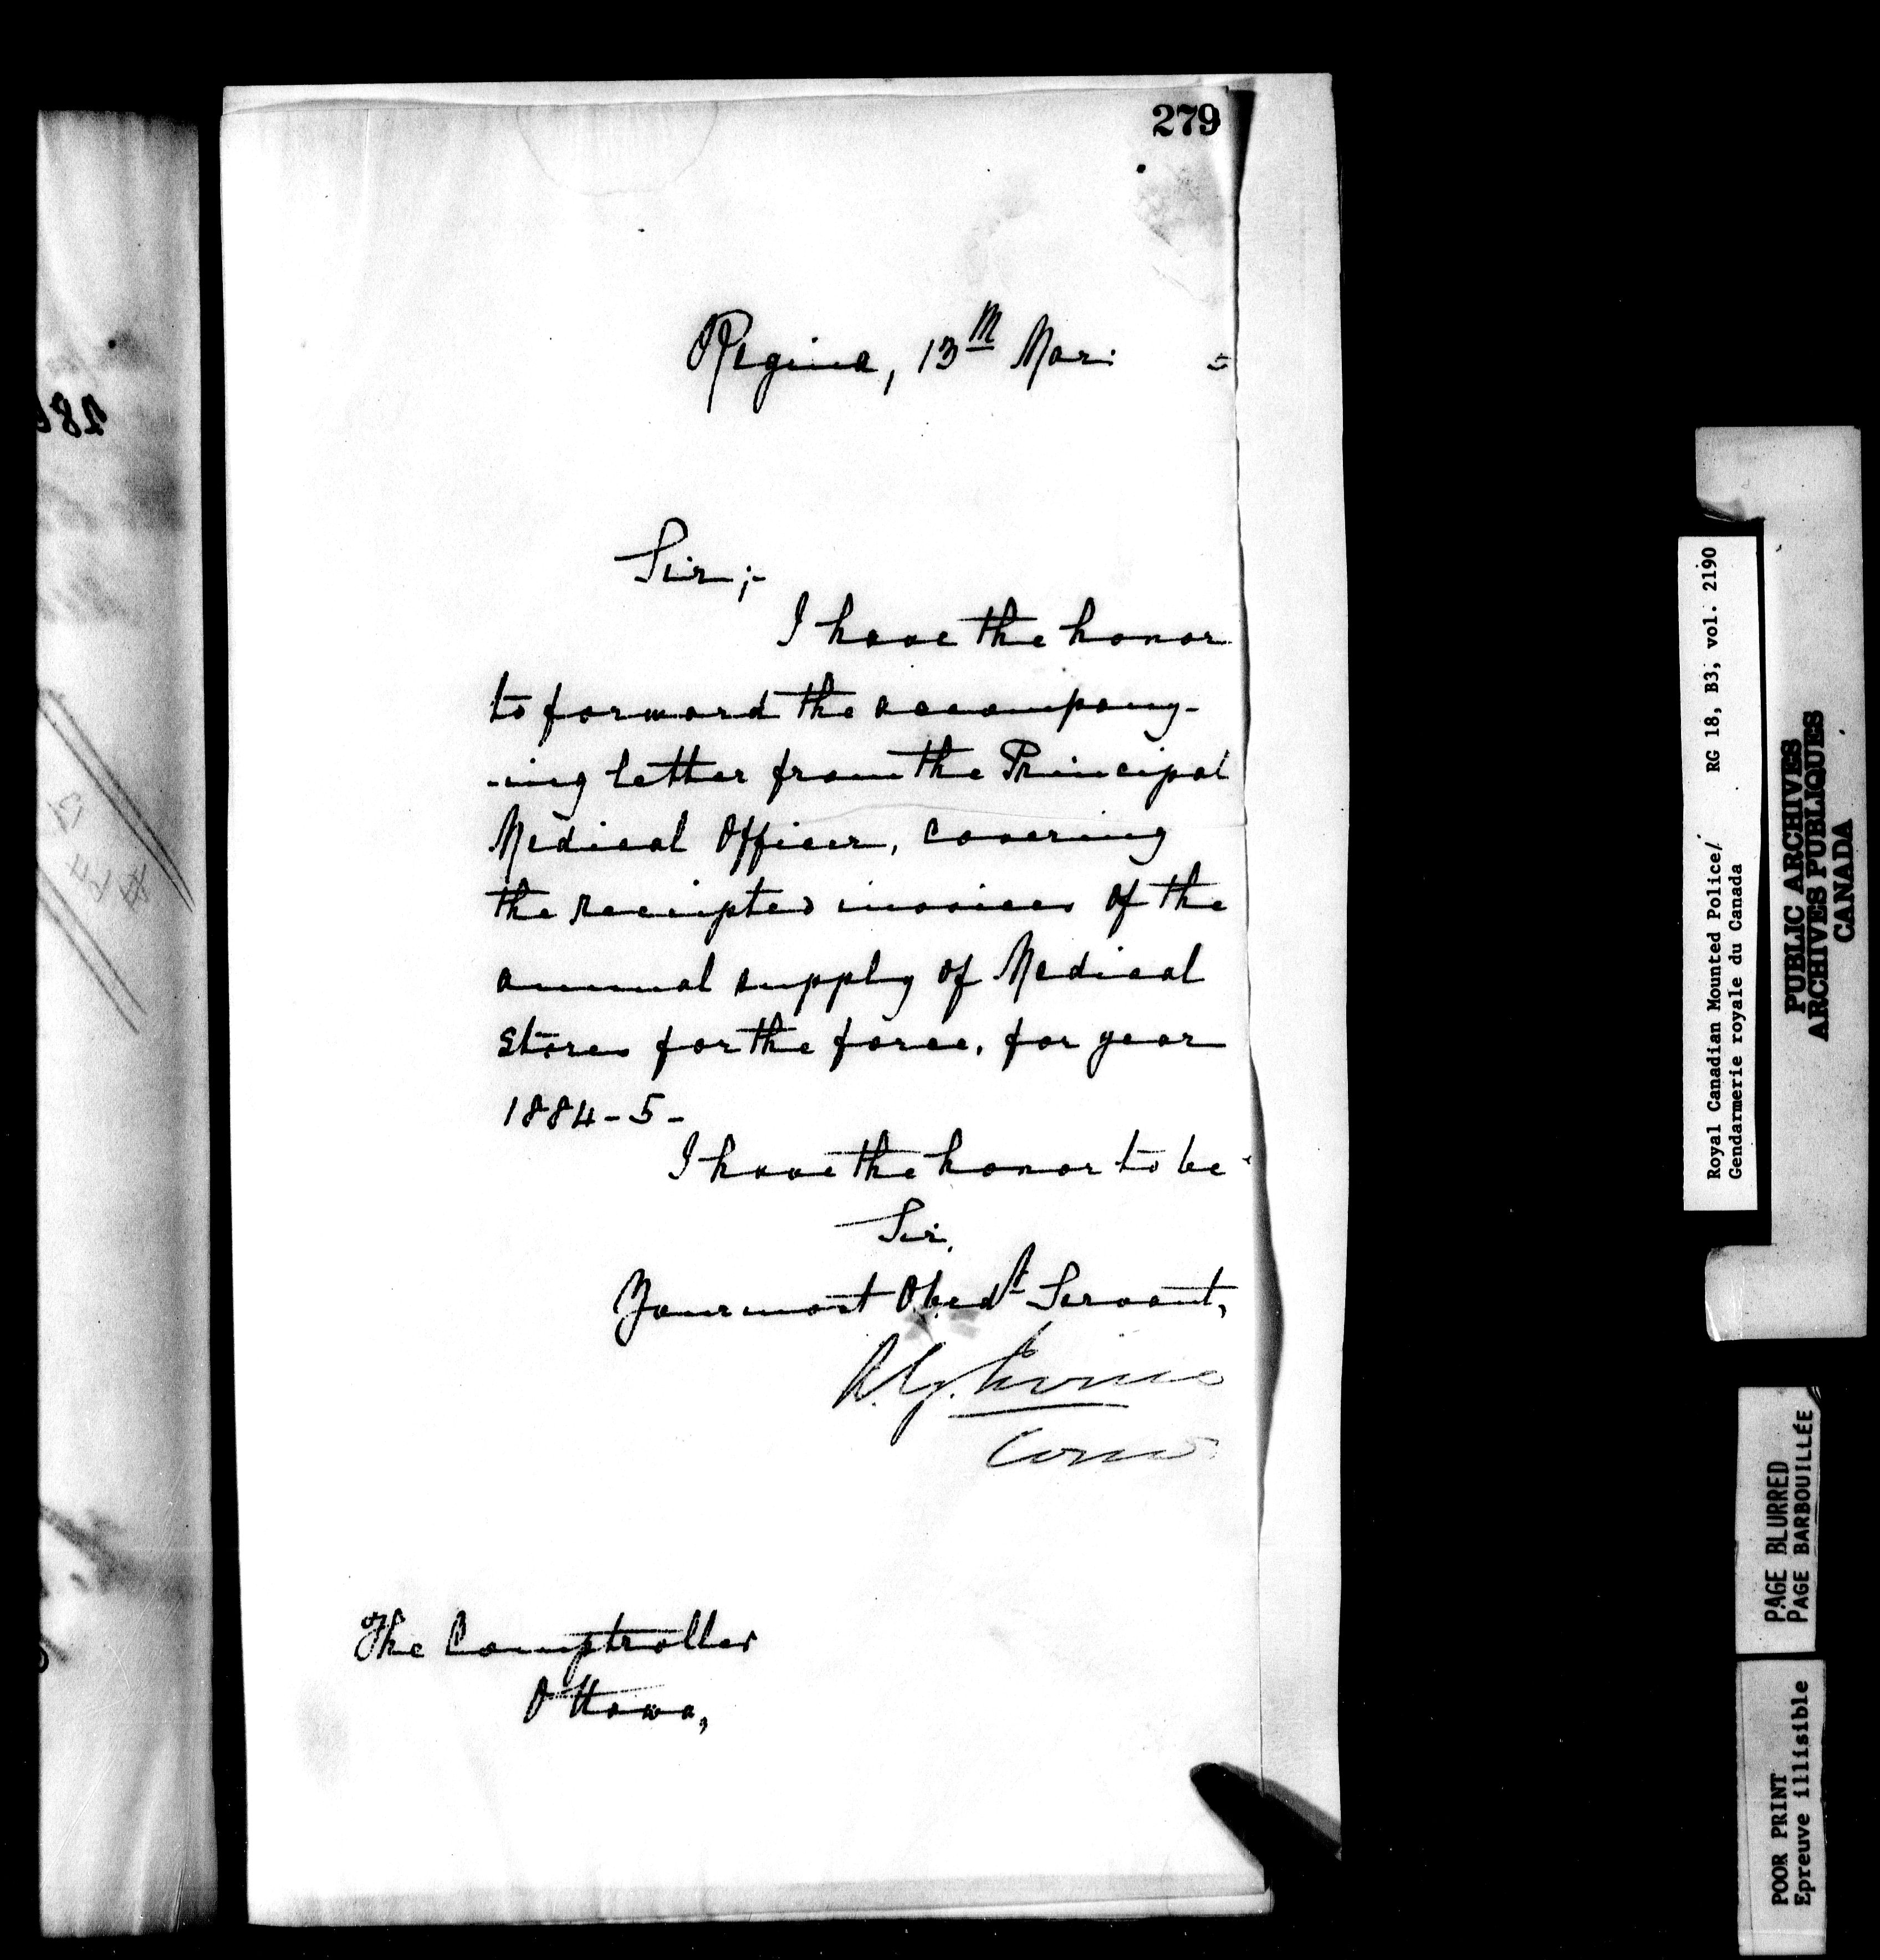 279
Regina, 13th Mar: 5
Sir;-
I have the honor
to forward the accompany-
-ing letter from the Principal
Medical Officer, covering
the receipted invoices of the
annual supply of Medical
stores for the force, for year
1884-5-
I have the honor to be
Sir,
Your most Obedt Servant,
A.G. Irvine
Comr
The Comptroller
Ottawa,
Royal Canadian Mounted Police/ RG 18, B3, vol. 2190
Gendarmerie royale du Canada
PUBLIC ARCHIVES
ARCHIVES PUBLIQUES
CANADA
PAGE BLURRED
PAGE BARBOUILLÉE
POOR PRINT
Epreuve illisible